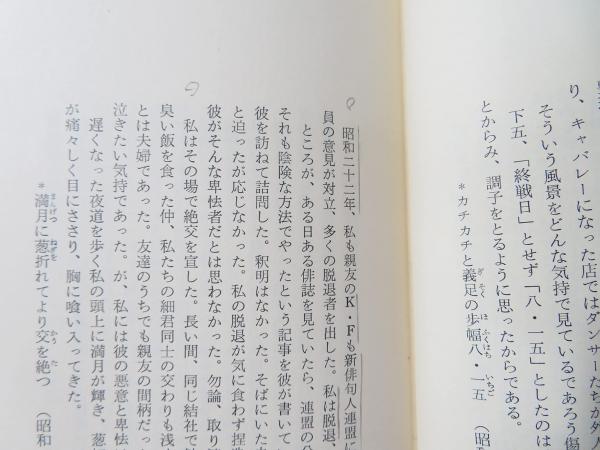 り、キャバレーになった店ではダンサーたちが外人
そういう風景をどんな気持で見ているであろう傷
下五、「終戦日」とせず「八・一五」としたのは
とからみ、調子をとるように思ったからである。
*カチカチと義足の歩幅八・一五 (昭
ぎそく ほ ふくはち いちご
昭和二十二年、私も親友のK・Fも新俳句人連盟に
員の意見が対立、多くの脱退者を出した。私は脱退、
ところが、ある日ある俳誌を見ていたら、連盟の公
それも陰険な方法でやったという記事を彼が書いてい
彼を訪ねて詰問した。釈明はなかった。そばにいた
と迫ったが応じなかった。私の脱退が気に食わず捏造
彼がそんな卑怯者だとは思わなかった。勿論、取り消
私はその場で絶交を宣した。長い間、同じ結社で
臭い飯を食った仲、私たちの細君同士の交わりも浅
とは夫婦であった。友達のうちでも親友の間柄だっ
泣きたい気持であった。が、私には彼の悪意と卑怯
遅くなった夜道を歩く私の頭上に満月が輝き、葱
が痛々しく目にささり、胸に喰い入ってきた。
*満月に葱折れてより交を絶つ (昭和
まんげつ ねぎを かう た